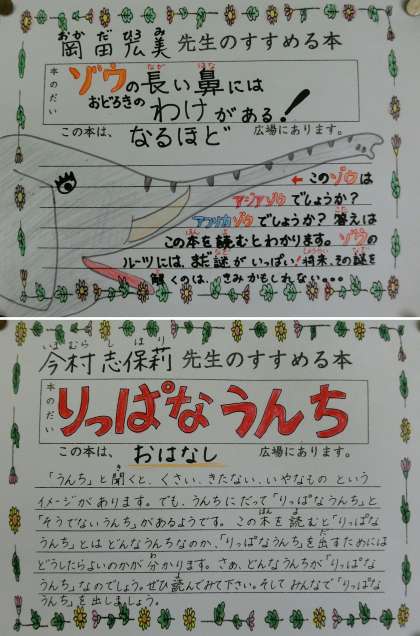 おか だ ひろ み
岡田 弘美 先生のすすめる本
本のだい
なが はな
ゾウの長い鼻には
おどろきのわけがある!
この本は、なるほど広場にあります。
← このゾウは
アジアゾウでしょうか?
アフリカゾウでしょうか? 答えは
この本を読むとわかります。ゾウの
ルーツには、まだ謎がいっぱい!将来、その謎を
解くのは、きみかもしれない。。。
いまむら し ほ り
今村 志保莉 先生のすすめる本
本のだい
りっぱなうんち
この本は、おはなし広場にあります。
「うんち」と聞くと、くさい、きたない、いやなもの という
イメージがあります。でも、うんちにだって「りっぱなうんち」と
「そうでないうんち」があるようです。この本を読むと「りっぱな
うんち」とはどんなうんちなのか、「りっぱなうんち」を出すためには
どうしたらよいのかが分かります。さぁ、どんなうんちが「りっぱな
うんち」なのでしょう。ぜひ読んでみて下さい。そしてみんなで「りっぱな
うんち」を出しましょう。